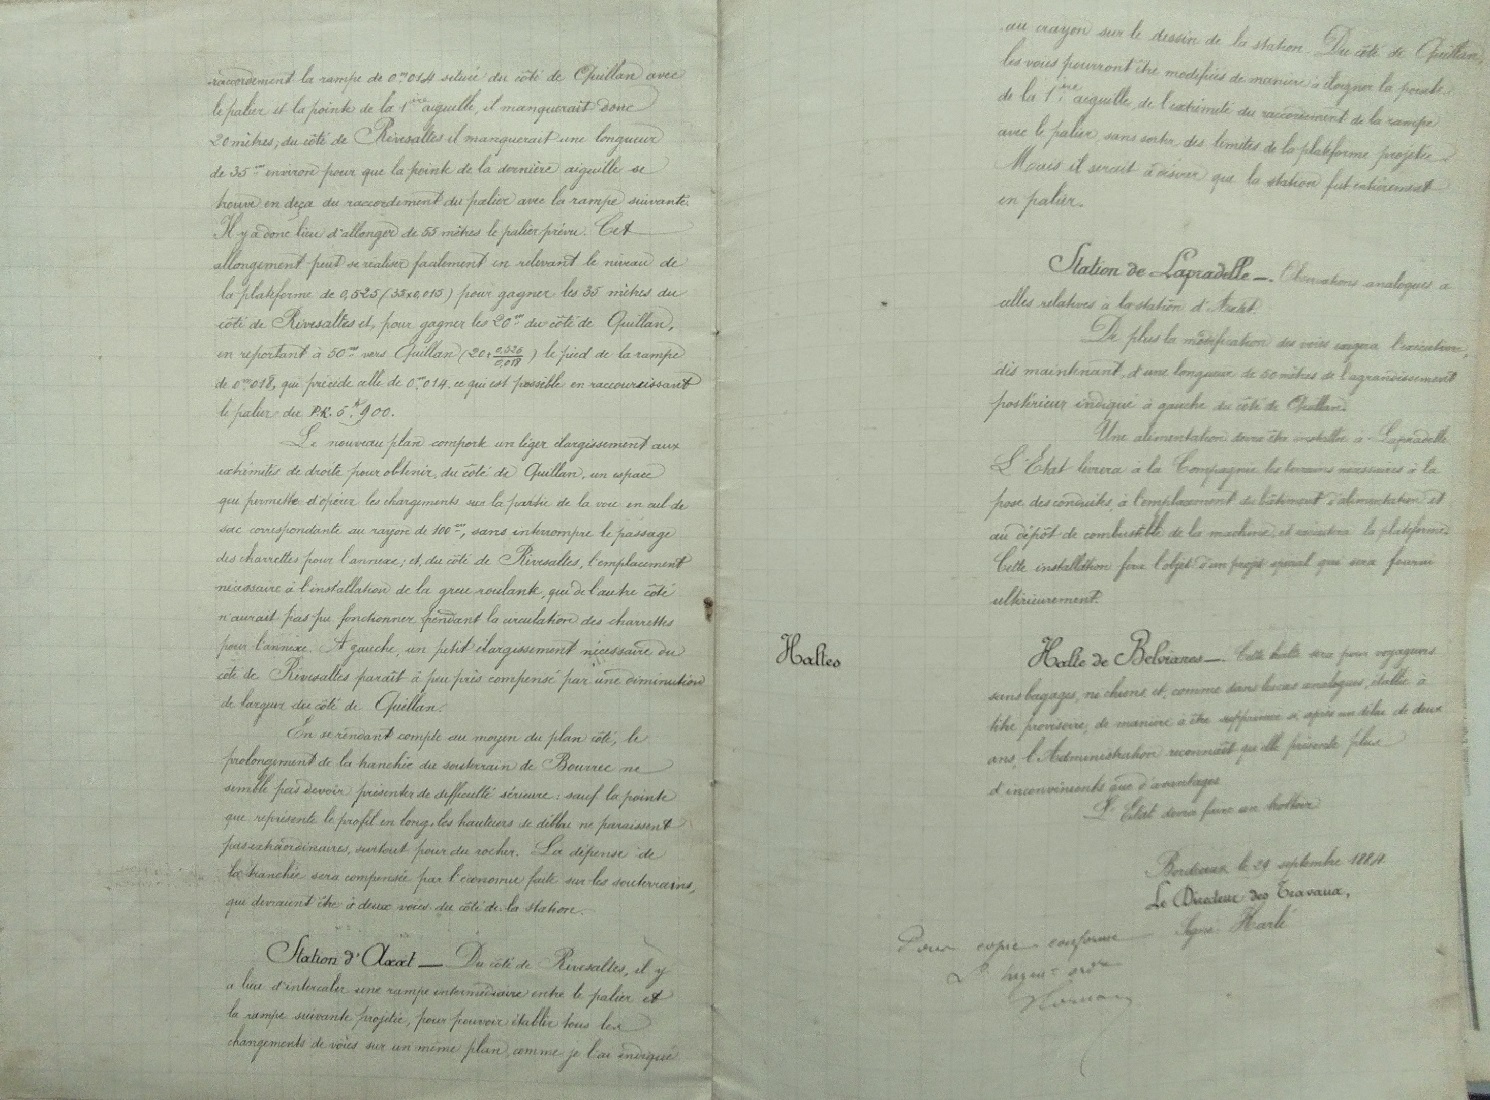 raccordement la rampe de 0m014 située du côté de Quillan avec
le palier et la pointe de la 1ère aiguille, il manquerait donc
20 mètres; du côté de Rivesaltes il manquerait une longueur
de 35m environ pour que la pointe de la dernière aiguille se
trouve en deça du raccordement du palier avec la rampe suivante.
Il y a donc lieu d'allonger de 55 mètres le palier prévu. Cet
allongement peut se réaliser facilement en relevant le niveau de
la plateforme de 0,525 (35x0,015) pour gagner les 35 mètres du
côté de Rivesaltes et, pour gagner les 20m du côté de Quillan,
en reportant à 50m vers Quillan (20+0,525/0,018) le pied de la rampe
de 0m018, qui précède celle de 0m014, ce qui est possible en raccourcissant
le palier du P.K. 5k900.
Le nouveau plan comporte un léger élargissement aux
extrémités de droite pour obtenir, du côté de Quillan, un espace
qui permette d'opérer les chargements sur la partie de la voie en cul de
sac correspondante au rayon de 100m, sans interrompre le passage
des charrettes pour l'annexe; et, du côté de Rivesaltes, l'emplacement
nécessaire à l'installation de la grue roulante, qui de l'autre côté
n'aurait pas pu fonctionner pendant la circulation des charrettes
pour l'annexe. A gauche, un petit élargissement nécessaire du
côté de Rivesaltes paraît à peu près compensé par une diminution
de largeur du côté de Quillan.
En se rendant compte au moyen du plan côté, le
prolongement de la tranchée du souterrain de Bourrec ne
semble pas devoir présenter de difficulté sérieuse: sauf la pointe
que représente le profil en long, les hauteurs de déblai ne paraissent
pas extraordinaires, surtout pour du rocher. La dépense de
la tranchée sera compensée par l'économie faite sur les souterrains,
qui devraient être à deux voies du côté de la station.
Station d'Axat — Du côté de Rivesaltes, il y
a lieu d'intercaler une rampe intermédiaire entre le palier et
la rampe suivante projetée, pour pouvoir établir tous les
changements de voies sur un même plan, comme je l'ai indiqué
au crayon sur le dessin de la station. Du côté de Quillan,
les voies pourront être modifiées de manière à éloigner la pointe
de la 1ère aiguille, de l'extrémité du raccordement de la rampe
avec le palier, sans sortir des limites de la plateforme projetée.
Mais il serait à désirer que la station fut entièrement
en palier.
Station de Lapradelle —. Observations analogues à
celles relatives à la station d'Axat.
De plus la modification des voies exigera l'exécution,
dès maintenant, d'une longueur de 50 mètres de l'agrandissement
postérieur indiqué à gauche du côté de Quillan.
Une alimentation devra être installée à Lapradelle
L'Etat livrera à la Compagnie les terrains nécessaires à la
pose des conduites, à l'emplacement du bâtiment d'alimentation et
au dépôt de combustible de la machine, et exécutera la plateforme.
Cette installation fera l'objet d'un projet spécial qui sera fourni
ultérieurement.
Haltes
Halte de Belvianes —. Cette halte sera pour voyageurs
sans bagages, ni chiens et, comme dans les cas analogues, établie à
titre provisoire, de manière à être supprimée si, après un délai de deux
ans, l'Administration reconnaît qu'elle présente plus
d'inconvénients que d'avantages
L'Etat devra faire un trottoir
Bordeaux, le 29 septembre 1884
Le Directeur des Travaux,
Signé: Harlé
Pour copie conforme